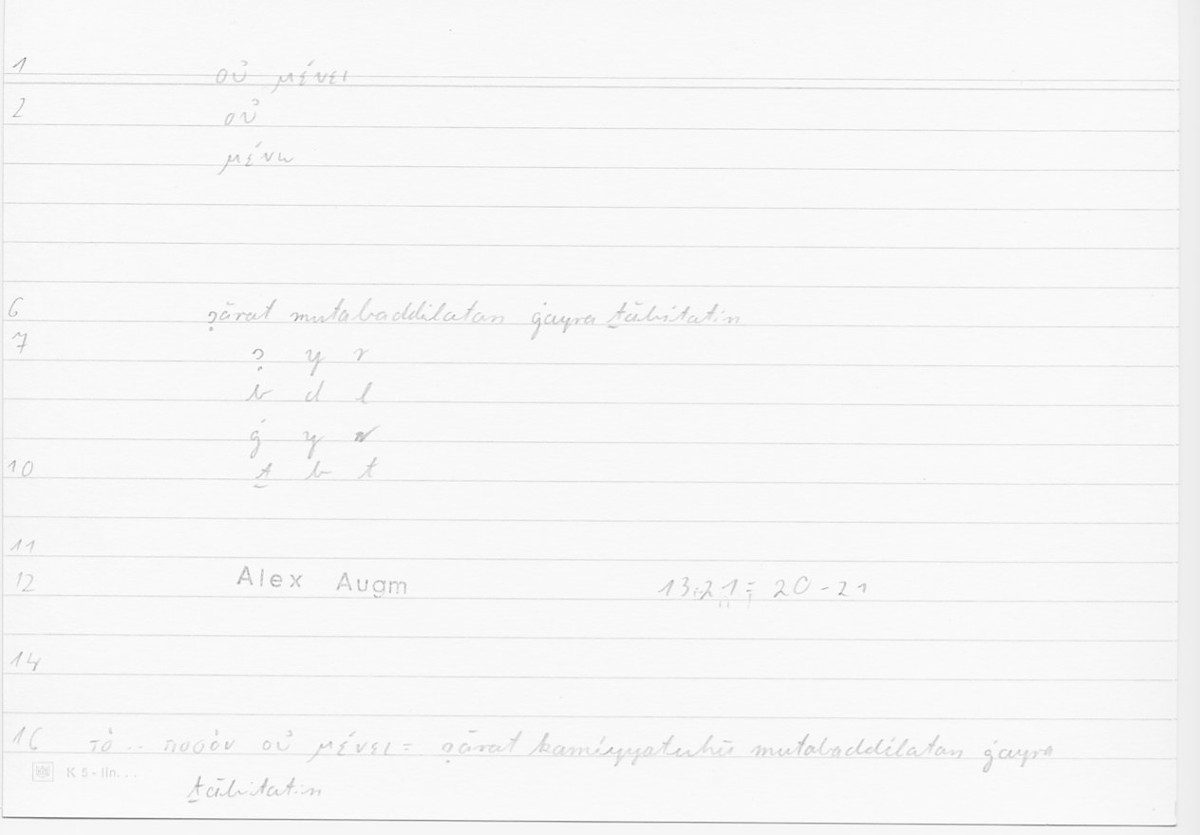 1 οὐ μένει
2 οὐ
μένω
6 ṣārat mutabaddilatan ġayra ṯābitatin
7 ṣ y r
b d l
ġ y r
10 ṯ b t
11
12 Alex Augm 13,21 = 20-21
14
16 τὸ .. ποσὸν οὐ μένει = ṣārat kamiyyatuhū mutabaddilatan ġayra
K 5 - lin. . .
ṯābitatin